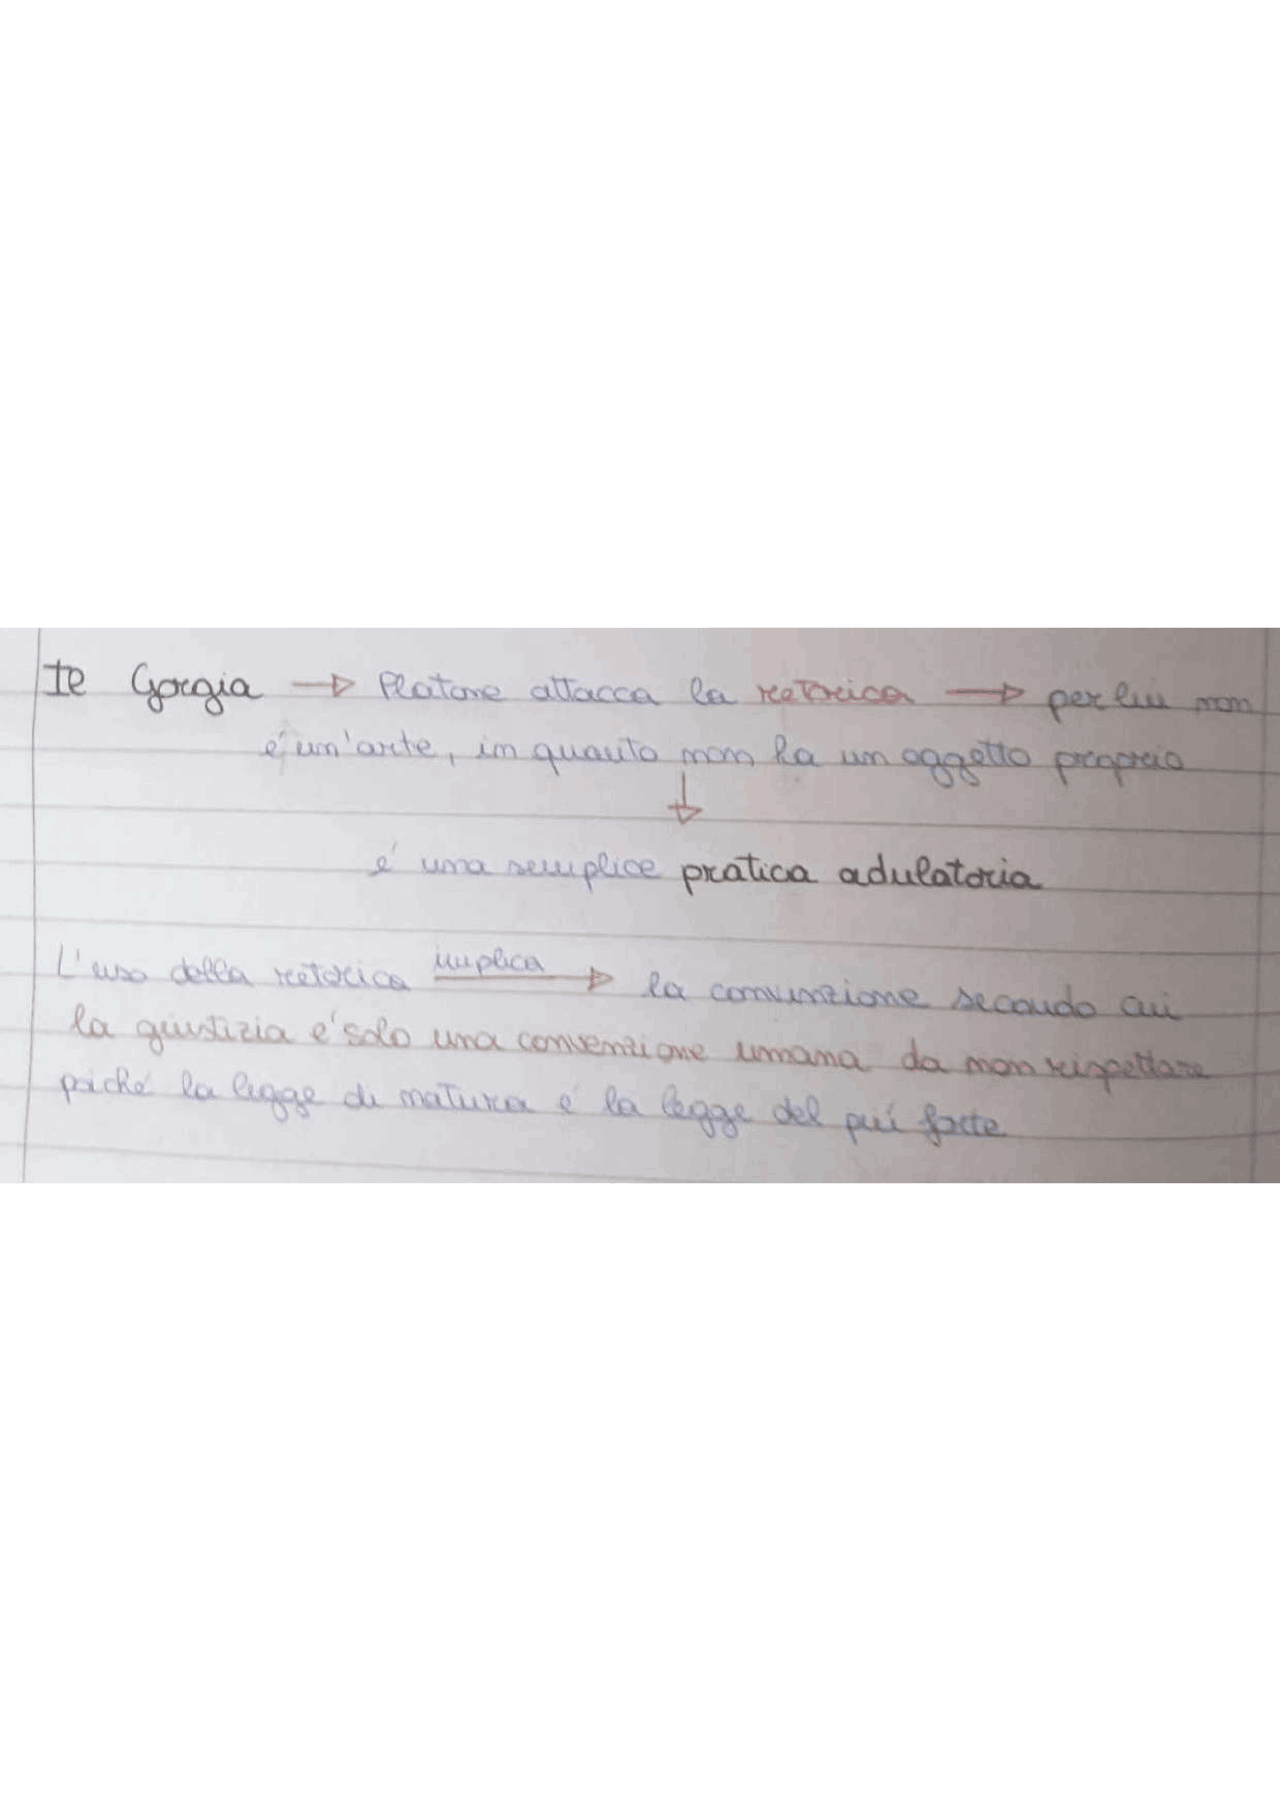 Il Gorgia → Platone attacca la retorica → per lui non
é un'arte, in quanto non ha un oggetto proprio
↓
é una semplice pratica adulatoria
L'uso della retorica implica → la convinzione secondo cui
la giustizia é solo una convenzione umana da non rispettare
poiché la legge di natura é la legge del piú forte